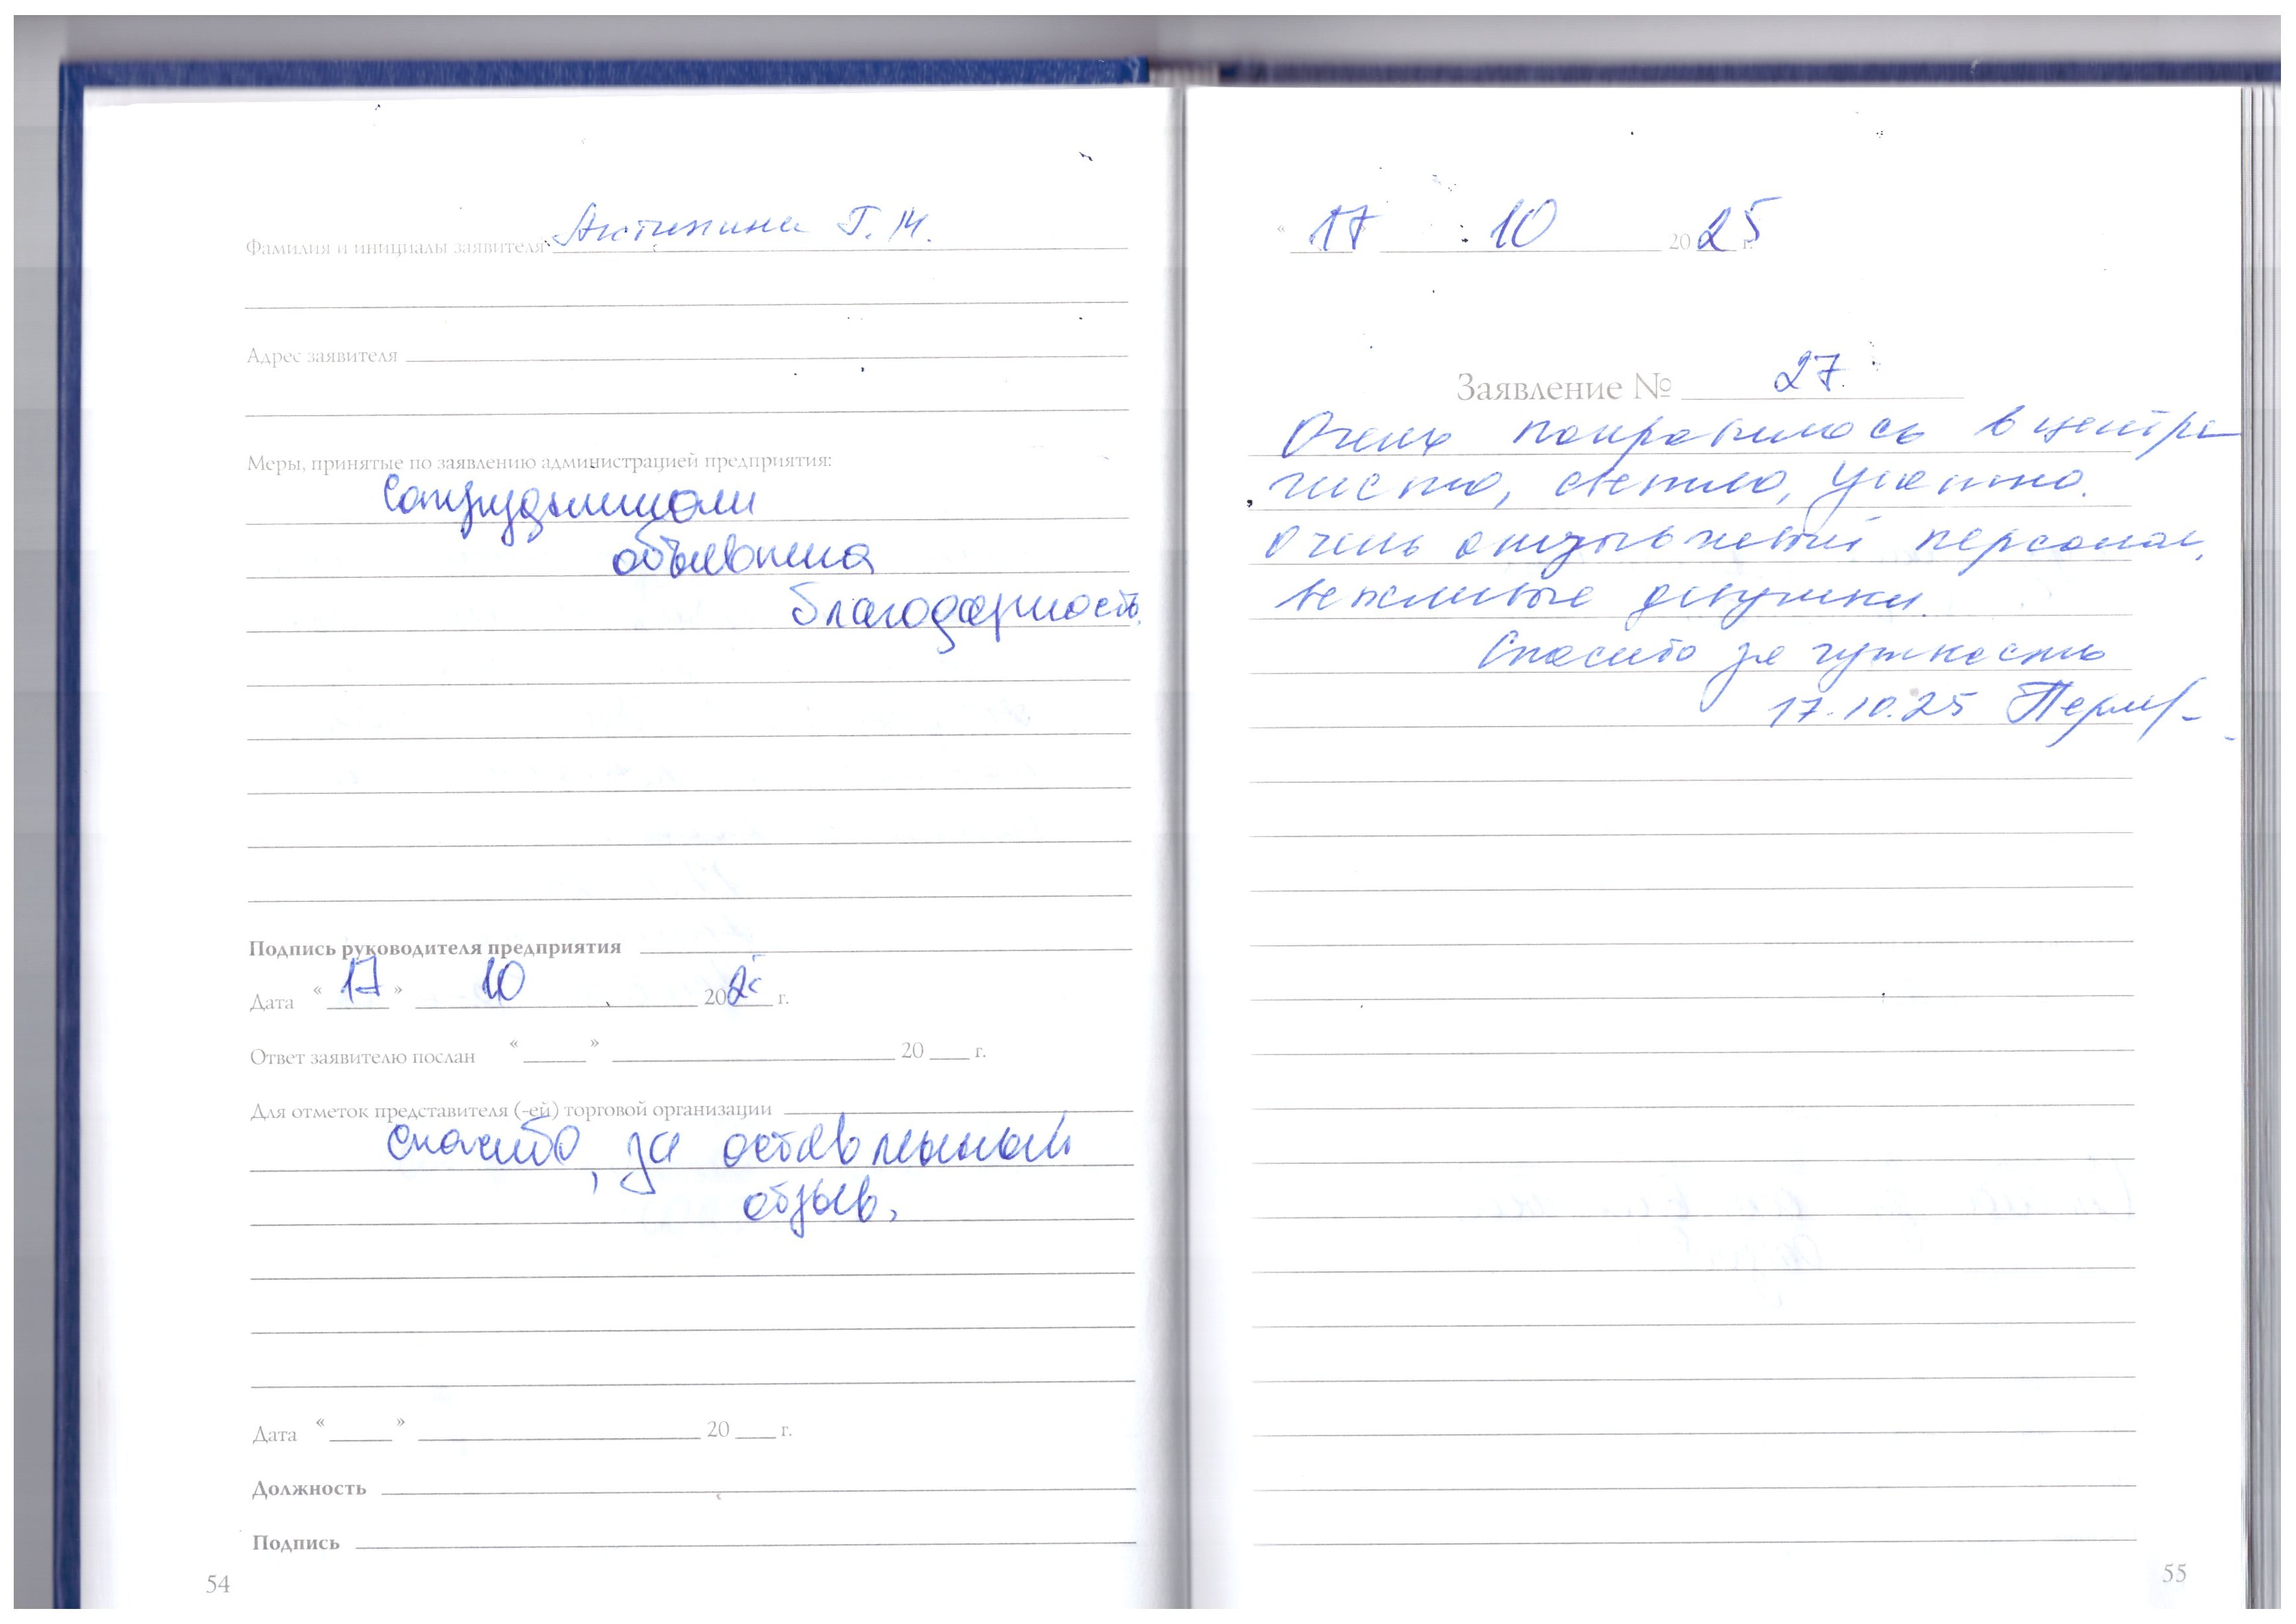 Фамилия и инициалы заявителя Антипина Г. М.
Адрес заявителя
Меры, принятые по заявлению администрацией предприятия:
Сотрудникам
объявлена
благодарность.
Подпись руководителя предприятия
Дата « 17 » 10 2025 г.
Ответ заявителю послан « » 20 г.
Для отметок представителя (-ей) торговой организации
Спасибо, за оставленный
отзыв.
Дата « » 20 г.
Должность
Подпись
54
« 17 10 2025 г.
Заявление № 27
Очень понравилось в центре
чисто, светло, уютно.
Очень отзывчивый персонал,
вежливые девушки.
Спасибо за чуткость
17.10.25
55